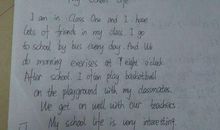 My School Life
I am in Class One and I have
lots of friends in my class. I go
to school by bus every day. And We
do morning exercises at eight o'clock.
After school I often play basketball
on the playground with my classmates.
We get on well with our teachers.
My school life is very interesting.